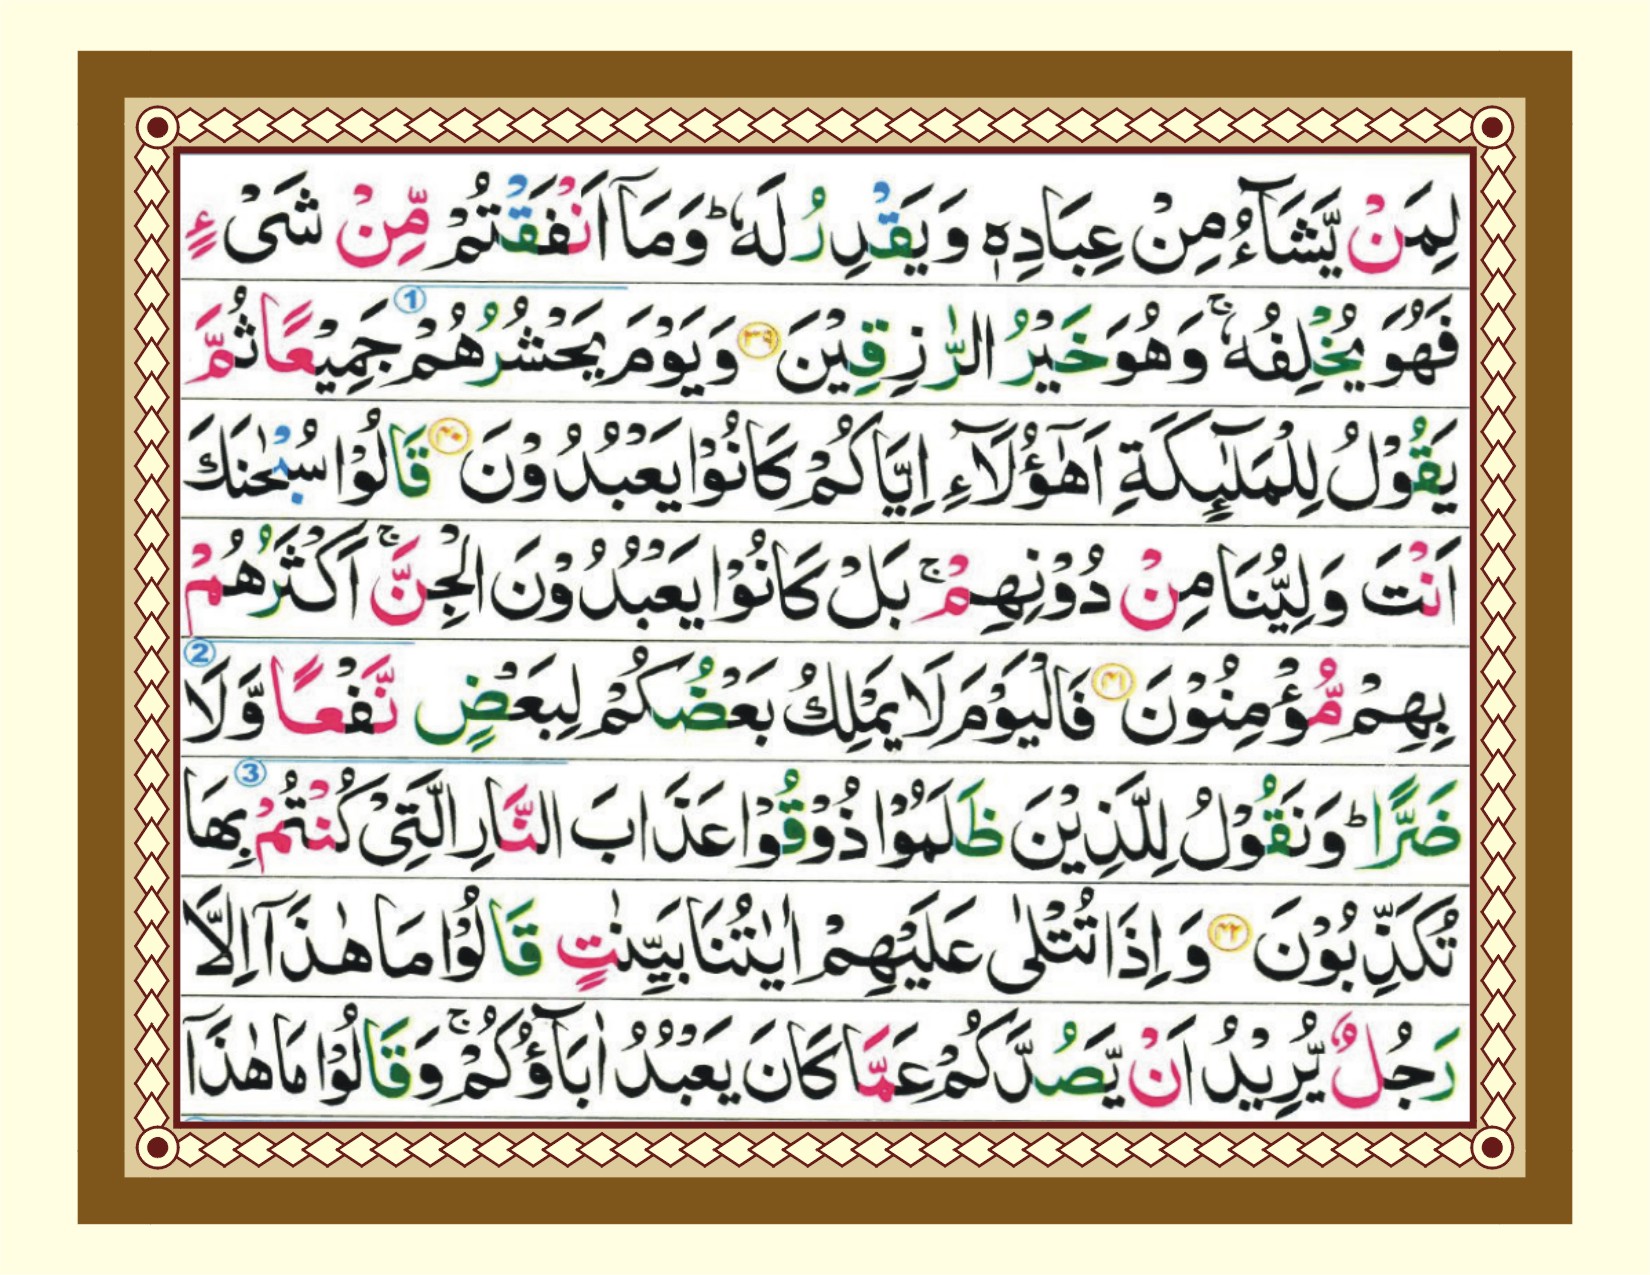 لِمَنْ يَّشَآءُ مِنْ عِبَادِهٖ وَيَقْدِرُ لَهٗ ؕ وَمَاۤ اَنْفَقْتُمْ مِّنْ شَیْءٍ
فَهُوَ يُخْلِفُهٗ ۚ وَهُوَ خَيْرُ الرّٰزِقِيْنَ ۳۹ وَيَوْمَ يَحْشُرُهُمْ جَمِيْعًا ثُمَّ
①
يَقُوْلُ لِلْمَلٰٓئِكَةِ اَهٰٓؤُلَآءِ اِيَّاكُمْ كَانُوْا يَعْبُدُوْنَ ۴۰ قَالُوْا سُبْحٰنَكَ
اَنْتَ وَلِيُّنَا مِنْ دُوْنِهِمْ ۚ بَلْ كَانُوْا يَعْبُدُوْنَ الْجِنَّ ۚ اَكْثَرُهُمْ
بِهِمْ مُّؤْمِنُوْنَ ۴۱ فَالْيَوْمَ لَا يَمْلِكُ بَعْضُكُمْ لِبَعْضٍ نَّفْعًا وَّلَا
②
ضَرًّا ؕ وَنَقُوْلُ لِلَّذِيْنَ ظَلَمُوْا ذُوْقُوْا عَذَابَ النَّارِ الَّتِیْ كُنْتُمْ بِهَا
③
تُكَذِّبُوْنَ ۴۲ وَ اِذَا تُتْلٰى عَلَيْهِمْ اٰيٰتُنَا بَيِّنٰتٍ قَالُوْا مَا هٰذَاۤ اِلَّا
رَجُلٌ يُّرِيْدُ اَنْ يَّصُدَّكُمْ عَمَّا كَانَ يَعْبُدُ اٰبَآؤُكُمْ ۚ وَقَالُوْا مَا هٰذَاۤ